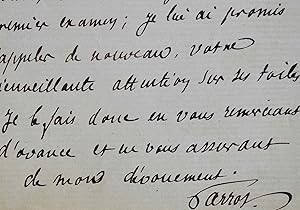 premier examen; je lui ai promis
d'appeler de nouveau, votre
bienveillante attention sur ses toiles
Je le fais donc en vous remerciant
d'avance et en vous assurant
de mon dévouement.
Parrot.